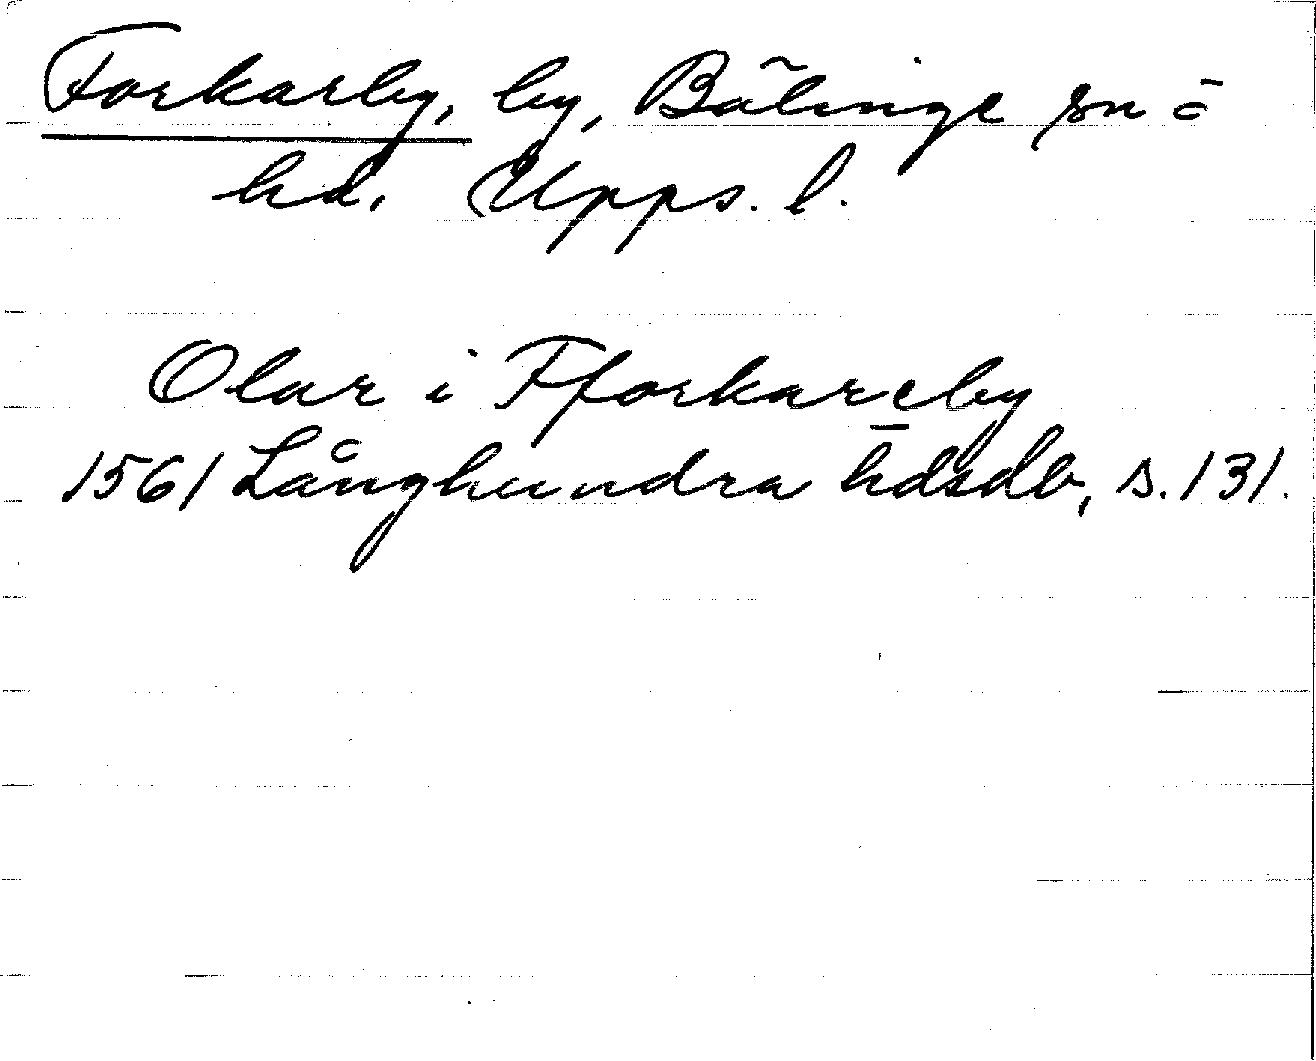 Forkarby, by, Bälinge sn o
hd. Upps. l.
Olar i Fforkareby
1561 Långhundra hdsdb, s. 131.